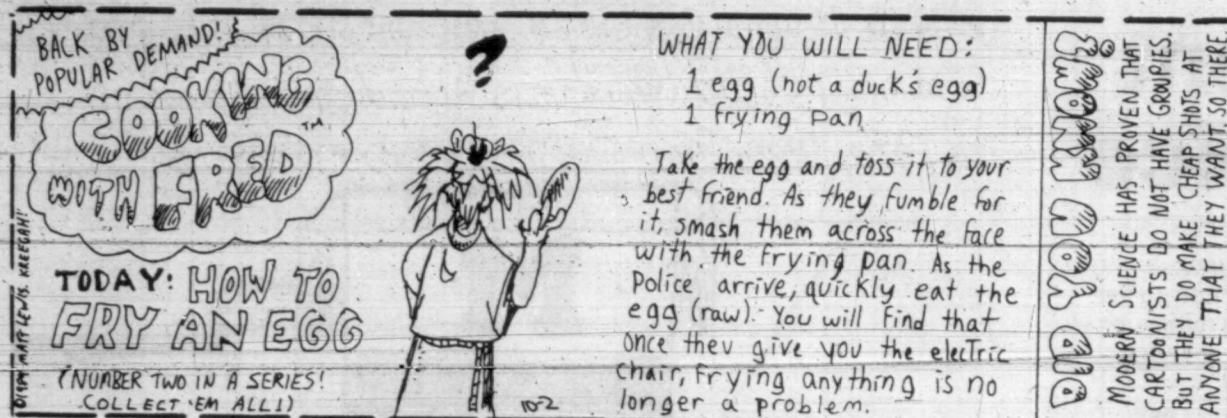 BACK BY
POPULAR DEMAND!
COOKING
WITH FRED™
TODAY: HOW TO
FRY AN EGG
(NUMBER TWO IN A SERIES!
COLLECT 'EM ALL!)
LEWIS. KREEGAH!
?
10-2
WHAT YOU WILL NEED:
1 egg (not a duck's egg)
1 frying pan
Take the egg and toss it to your
best friend. As they fumble for
it, smash them across the face
with the frying pan. As the
Police arrive, quickly eat the
egg (raw). You will find that
once they give you the electric
chair, frying anything is no
longer a problem.
DID YOU KNOW?
MODERN SCIENCE HAS PROVEN THAT
CARTOONISTS DO NOT HAVE GROUPIES.
BUT THEY DO MAKE CHEAP SHOTS AT
ANYONE THAT THEY WANT SO THERE.